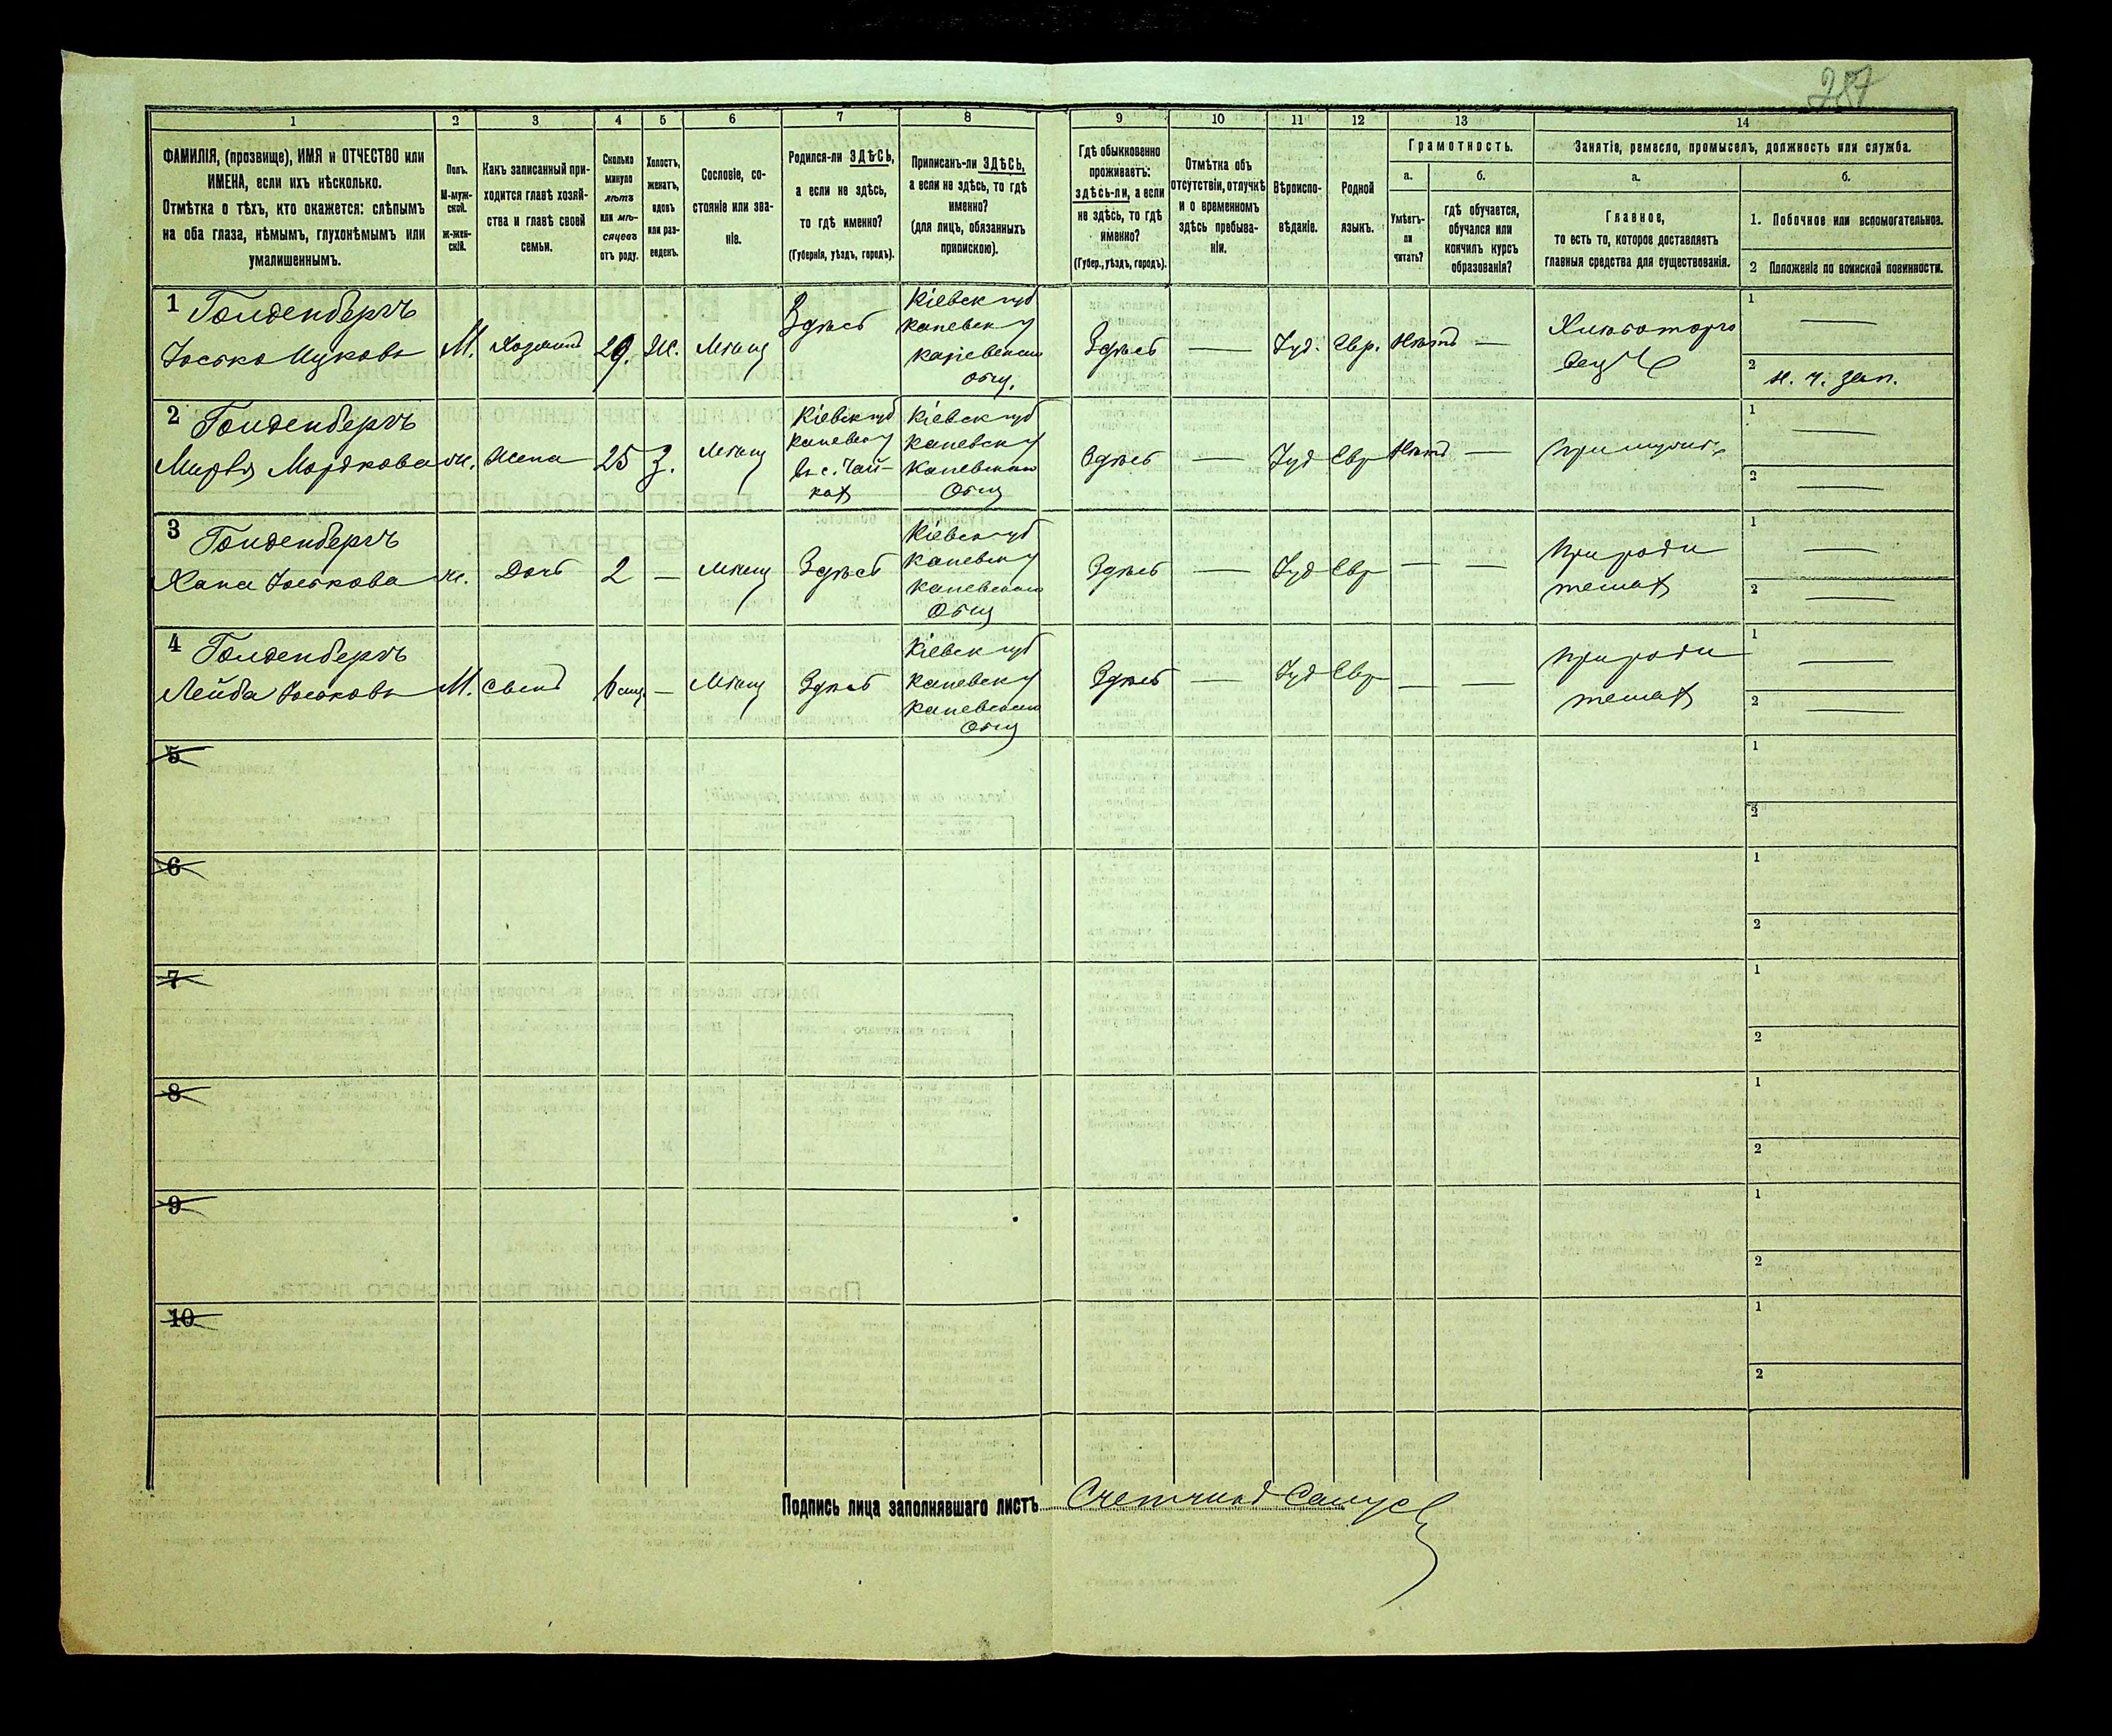 287
1 2 3 4 5 6 7 8 9 10 11 12 13 14
ФАМИЛІЯ, (прозвище), ИМЯ и ОТЧЕСТВО или
ИМЕНА, если ихъ нѣсколько.
Отмѣтка о тѣхъ, кто окажется: слѣпымъ
на оба глаза, нѣмымъ, глухонѣмымъ или
умалишеннымъ.
Полъ.
М-муж-
ской.
Ж-жен-
скій.
Какъ записанный при-
ходится главѣ хозяй-
ства и главѣ своей
семьи.
Сколько
минуло
лѣтъ
или мѣ-
сяцевъ
отъ роду.
Холостъ,
женатъ,
вдовъ
или раз-
веденъ.
Сословіе, со-
стояніе или зва-
ніе.
Родился-ли ЗДѢСЬ,
а если не здѣсь,
то гдѣ именно?
(Губернія, уѣздъ, городъ).
Приписанъ-ли ЗДѢСЬ,
а если не здѣсь, то гдѣ
именно?
(для лицъ, обязанныхъ
припискою).
Гдѣ обыкновенно
проживаетъ:
здѣсь-ли, а если
не здѣсь, то гдѣ
именно?
(Губер., уѣздъ, городъ).
Отмѣтка объ
отсутствіи, отлучкѣ
и о временномъ
здѣсь пребыва-
ніи.
Вѣроиспо-
вѣданіе.
Родной
языкъ.
Грамотность.
а.
Умѣетъ-
ли
читать?
б.
гдѣ обучается,
обучался или
кончилъ курсъ
образованія?
Занятіе, ремесло, промыселъ, должность или служба.
а.
Главное,
то есть то, которое доставляетъ
главныя средства для существованія.
б.
1. Побочное или вспомогательное.
2 Положеніе по воинской повинности.
1 Голденбергъ
Іосько Ицковъ
М.
Хозяинъ
29.
Ж.
Мѣщ
Здѣсь
Кіевск губ
Каневск у
Каневском
Общ.
Здѣсь
—
Іуд.
Евр.
Нѣтъ
—
Хлѣботорго
вецъ
1
—
2
н. ч. зап.
2 Голденбергъ
Мордкова
ж.
Жена
25
З.
Мѣщ
Кіевск губ
Каневск у
въ с. Чай-
ках
Кіевск губ
Каневск у
Каневском
Общ
Здѣсь
—
Іуд
Евр
Нѣтъ
—
При мужѣ
1
—
2
—
3 Голденбергъ
Хана Іоськова
ж.
Дочь
2
—
Мѣщ
Здѣсь
Кіевск губ
Каневск у
Каневском
Общ
Здѣсь
—
Іуд
Евр
—
—
При роди
телях
1
—
2
—
4 Голденбергъ
Лейба Іоськовъ
М.
Сынъ
—
Мѣщ
Здѣсь
Кіевск губ
Каневск у
Каневском
Общ
Здѣсь
—
Іуд
Евр
—
—
При роди
телях
1
—
2
—
5
1
2
6
1
2
7
1
2
8
1
2
9
1
2
10
1
2
Подпись лица заполнявшаго листъ Счетчикъ Самус